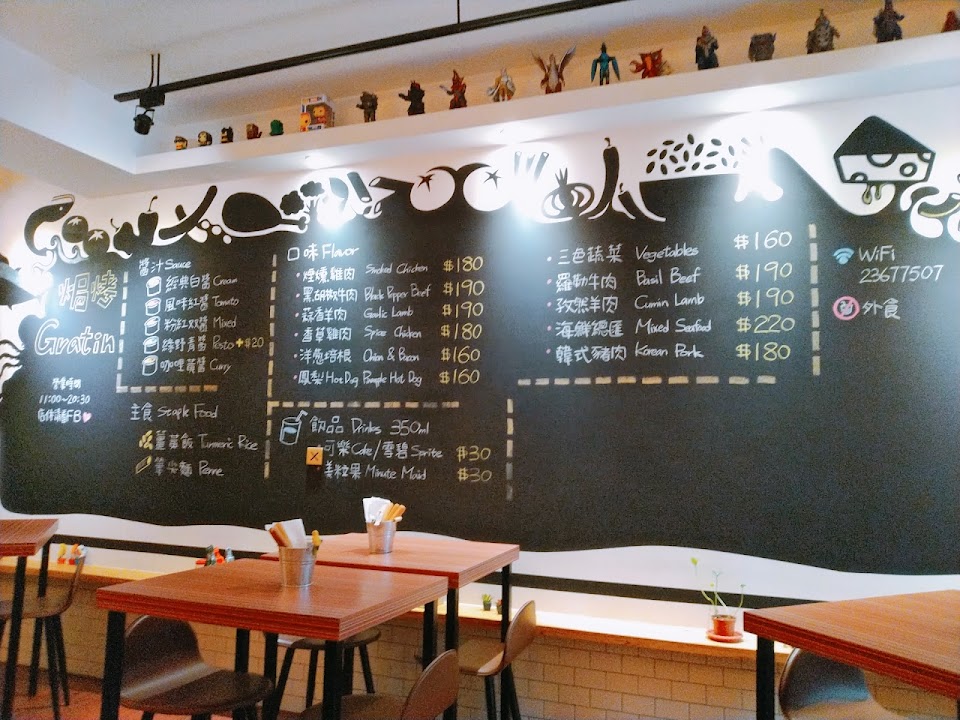 焗烤
Gratin
營業時間
11:00~20:30
店休請看FB
醬汁 Sauce
經典白醬 Cream
風味紅醬 Tomato
粉紅双醬 Mixed
綠野青醬 Pesto +$20
咖哩黃醬 Curry
主食 Staple Food
薑黃飯 Turmeric Rice
筆尖麵 Penne
口味 Flavor
·煙燻雞肉 Smoked Chicken $180
·黑胡椒牛肉 Black Pepper Beef $190
·蒜香羊肉 Garlic Lamb $190
·香草雞肉 Spice Chicken $180
·洋蔥培根 Onion & Bacon $160
·鳳梨HotDog Pineapple Hot Dog $160
飲品 Drinks 350ml
·可樂 Coke/雪碧 Sprite $30
美粒果 Minute Maid $30
·三色蔬菜 Vegetables $160
·羅勒牛肉 Basil Beef $190
·孜然羊肉 Cumin Lamb $190
·海鮮總匯 Mixed Seafood $220
·韓式豬肉 Korean Pork $180
WiFi
23677507
外食